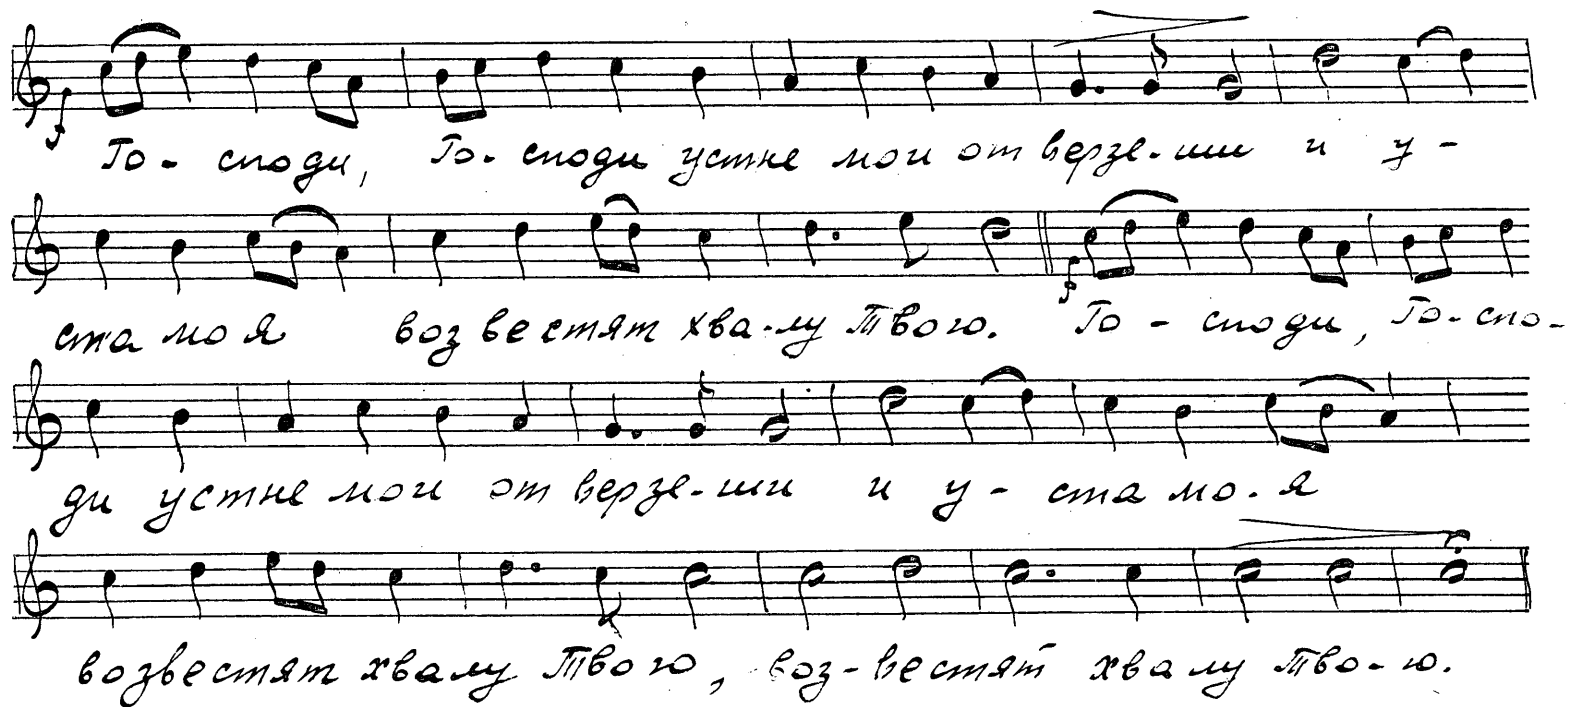 Го- споди, Го-споди устне мои от верзе-ши и у-
ста мо я воз ве стят хва-лу Твою. Го - споди, Го-спо-
ди устне мои от верзе-ши и у - ста мо-я
возвестят хвалу Твою, воз-вестят хвалу Тво-ю.